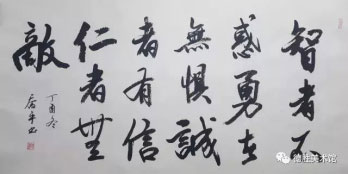 智者不
惑勇者
無懼誠
者有信
仁者無
敵
丁酉冬
德胜美术馆